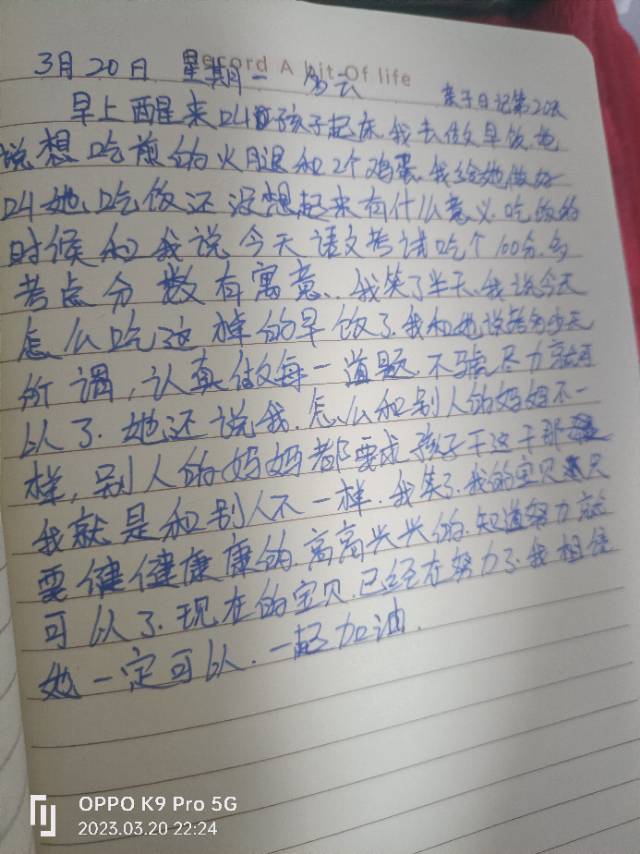 Record A bit Of life
3月20日 星期一 多云
亲子日记第20天
早上醒来叫孩子起床.我去做早饭.她
说想吃煎的火腿和2个鸡蛋.我给她做好
叫她.吃饭还没想起来有什么意义.吃饭的
时候和我说今天语文考试吃个100分.多
考点分数有寓意..我笑了半天.我说今天
怎么吃这样的早饭了.我和她说考多少无
所谓,认真做每一道题.不骗尽力就可
以了.她还说我.怎么和别人的妈妈不一
样,别人的妈妈都要求孩子干这干那
我就是和别人不一样.我笑了.我的宝贝只
要健健康康的.高高兴兴的.知道努力就
可以了.现在的宝贝.已经在努力了.我相信
她一定可以.一起加油.
OPPO K9 Pro 5G
2023.03.20 22:24